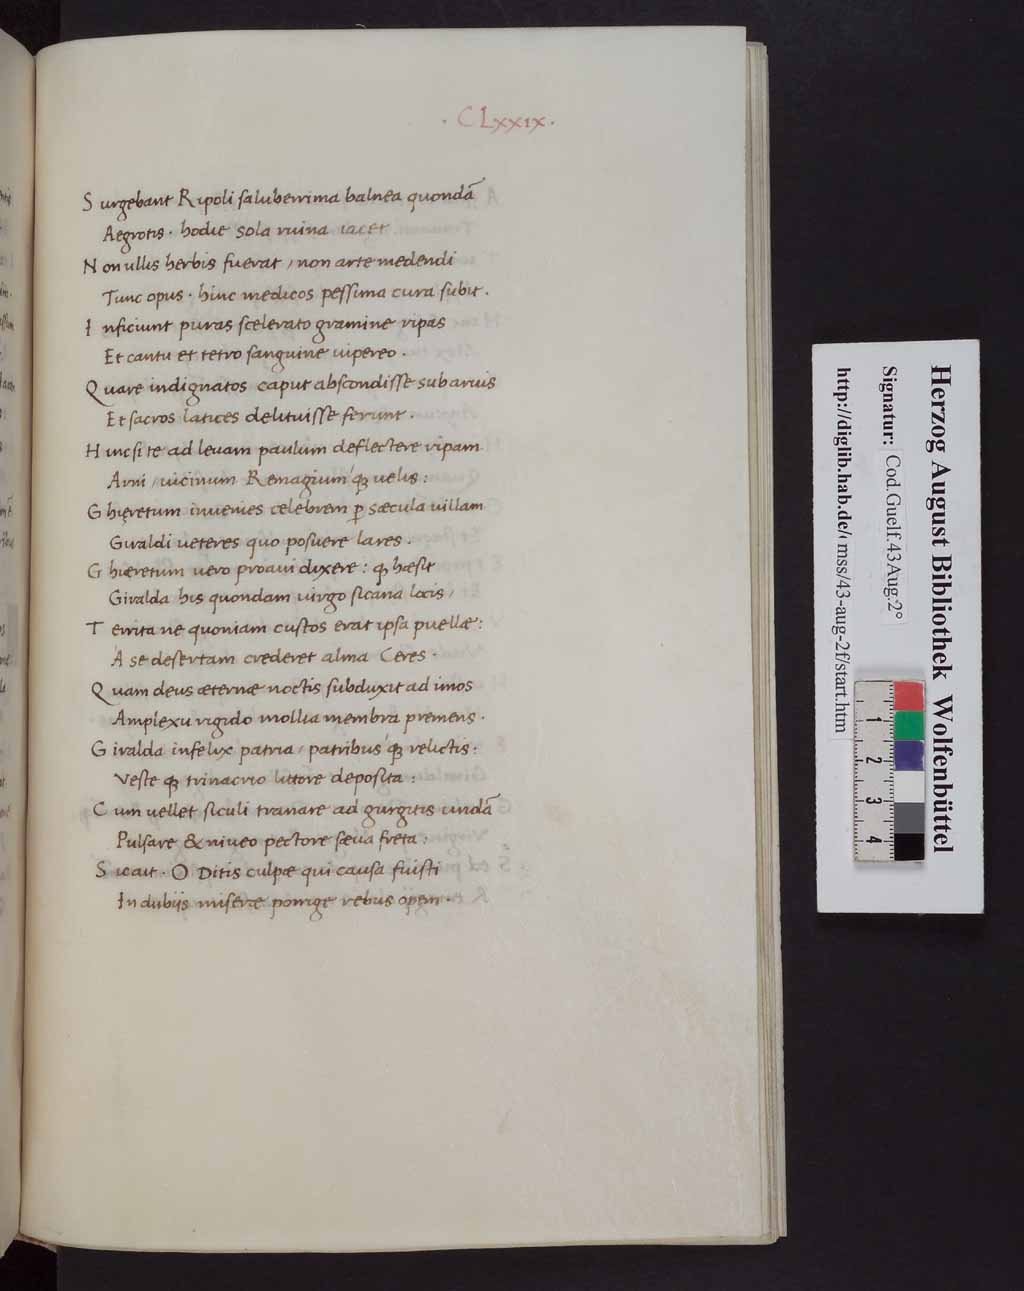 · CLxxix ·
Surgebant Ripoli saluberrima balnea quondā
Aegrotis · hodie sola ruina iacet
Non ullis herbis fuerat / non arte medendi
Tunc opus · hinc medicos pessima cura subit .
Inficiunt puras scelerato gramine ripas
Et cantu et tetro sanguine uipereo .
Quare indignatos caput abscondisse sub aruis
Et sacros latices delituisse ferunt .
Hinc si te ad leuam paulum deflectere ripam
Arni / uicinum Remagium'qꝫ uelis :
Ghięretum inuenies celebrem ꝑ sæcula uillam
Giraldi ueteres quo posuere lares .
Ghiæretum uero proaui dixere : qꝫ hæsit
Giralda his quondam uirgo sicana locis /
Territa ne quoniam custos erat ipsa puellæ :
A se desertam crederet alma Ceres ·
Quam deus æternæ noctis subduxit ad imos
Amplexu rigido mollia membra premens ·
Giralda infelix patria / patribus'qꝫ relictis :
Veste qꝫ trinacrio littore deposita :
Cum uellet siculi tranare ad gurgitis undā
Pulsare & niueo pectore sæua freta :
Sic ait · O Ditis culpæ qui causa fuisti
In dubijs miseræ porrige rebus opem ·
Herzog August Bibliothek Wolfenbüttel
Signatur: Cod.Guelf.43 Aug.2°
http://diglib.hab.de/ mss/43-aug-2f/start.htm
1 2 3 4